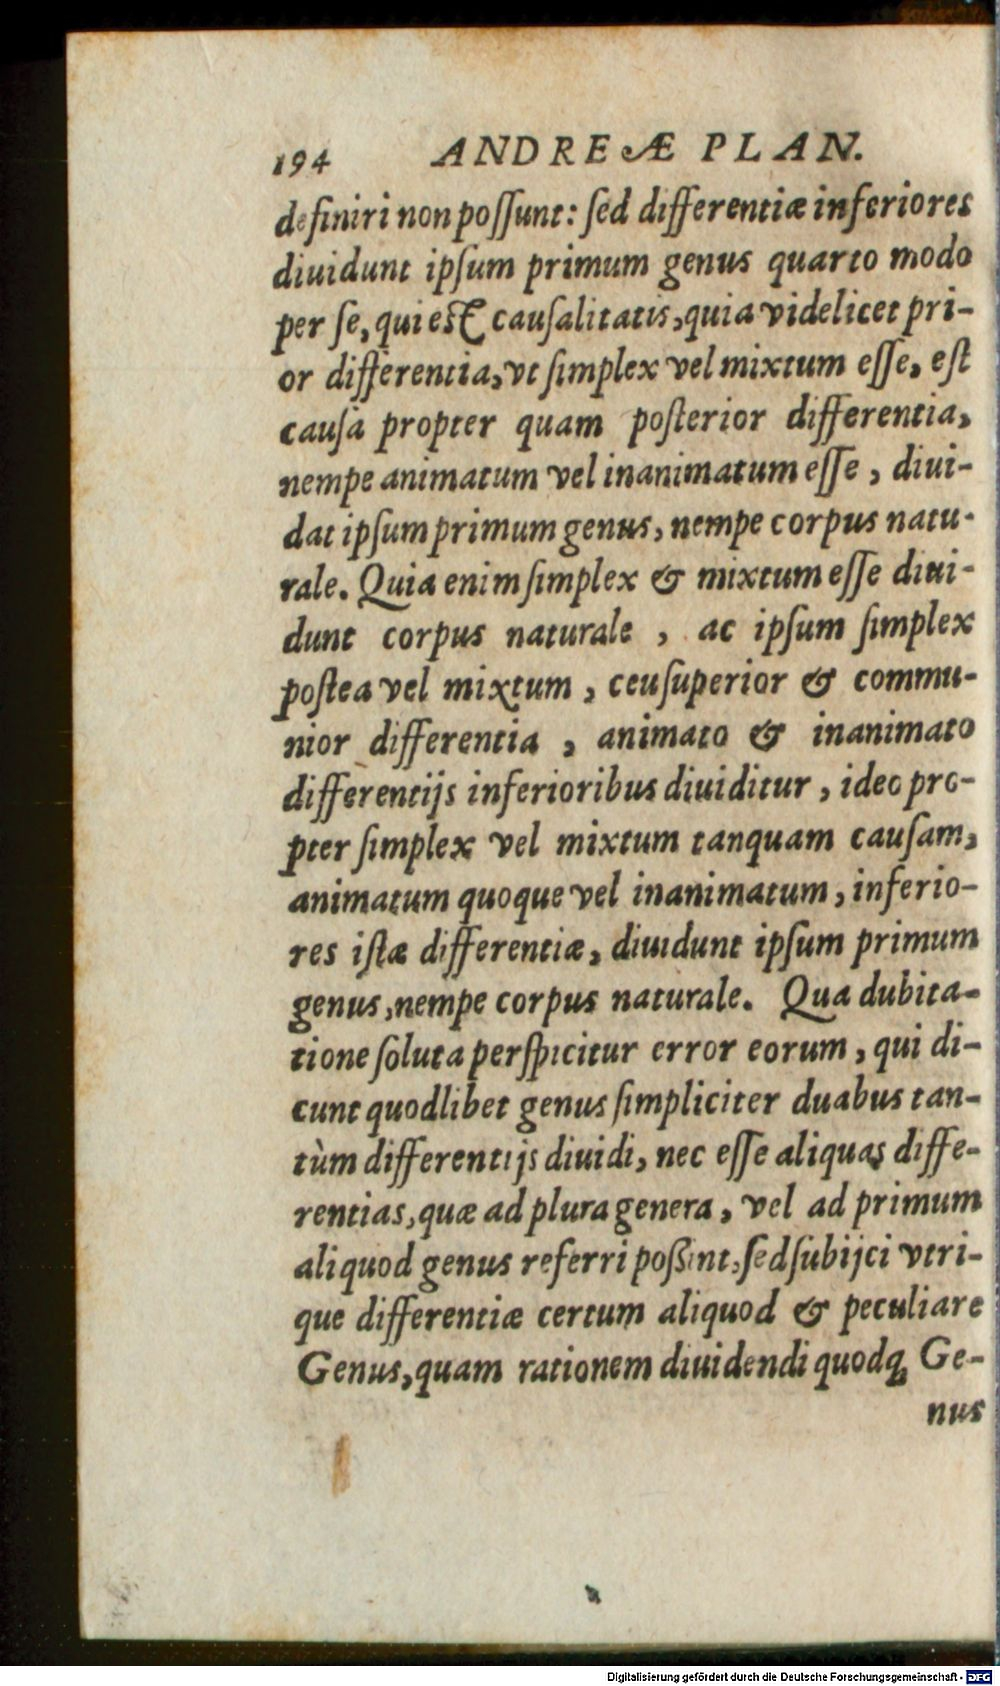 194 ANDREÆ PLAN.
definiri non poſſunt: ſed differentiæ inferiores
diuidunt ipſum primum genus quarto modo
per ſe, qui eſt cauſalitatis, quia videlicet pri-
or differentia, vt ſimplex vel mixtum eſſe, eſt
cauſa propter quam poſterior differentia,
nempe animatum vel inanimatum eſſe, diui-
dat ipſum primum genus, nempe corpus natu-
rale. Quia enim ſimplex & mixtum eſſe diui-
dunt corpus naturale, ac ipſum ſimplex
poſtea vel mixtum, ceu ſuperior & commu-
nior differentia, animato & inanimato
differentijs inferioribus diuiditur, ideo pro-
pter ſimplex vel mixtum tanquam cauſam,
animatum quoque vel inanimatum, inferio-
res iſtæ differentiæ, diuidunt ipſum primum
genus, nempe corpus naturale. Qua dubita-
tione ſoluta perſpicitur error eorum, qui di-
cunt quodlibet genus ſimpliciter duabus tan-
tùm differentijs diuidi, nec eſſe aliquas diffe-
rentias, quæ ad plura genera, vel ad primum
aliquod genus referri poßint, ſed ſubijci vtri-
que differentiæ certum aliquod & peculiare
Genus, quam rationem diuidendi quodq; Ge-
nus
Digitalisierung gefördert durch die Deutsche Forschungsgemeinschaft - DFG